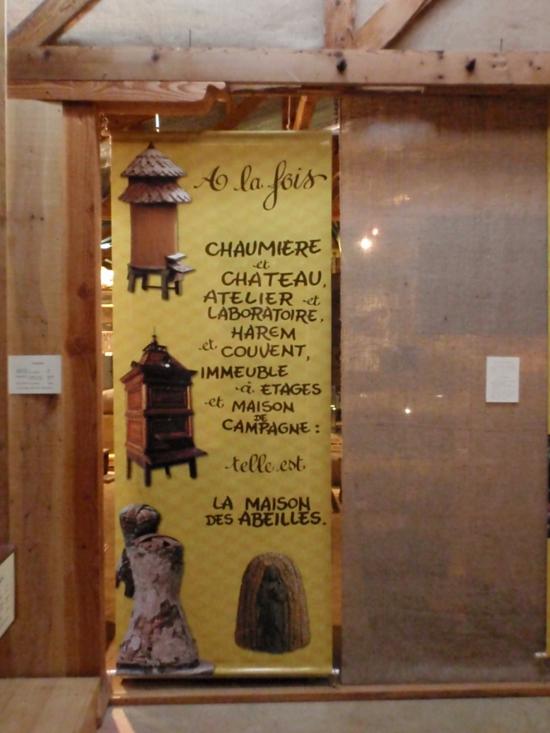 A la fois
CHAUMIÈRE
et
CHATEAU,
ATELIER et
LABORATOIRE,
HAREM
et COUVENT,
IMMEUBLE
à ETAGES
et MAISON
DE
CAMPAGNE :
telle est
LA MAISON
DES ABEILLES.